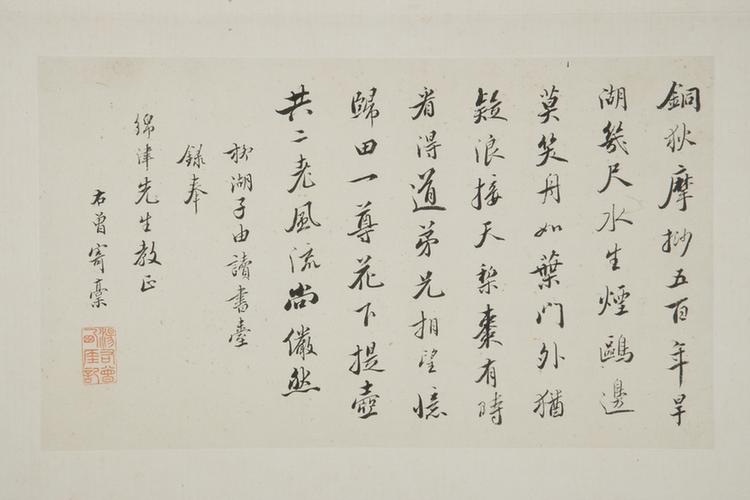 銅狄摩挱五百年旱
湖幾尺水生煙鷗邊
莫笑舟如葉門外猶
疑浪接天梨棗有時
得道弟兄相望憶
歸田一尊花下提壺
共二老風流尚儼然
湖子由讀書臺
錄奉
綿津先生教正
右曾寄稾
湯右曾
西厓記